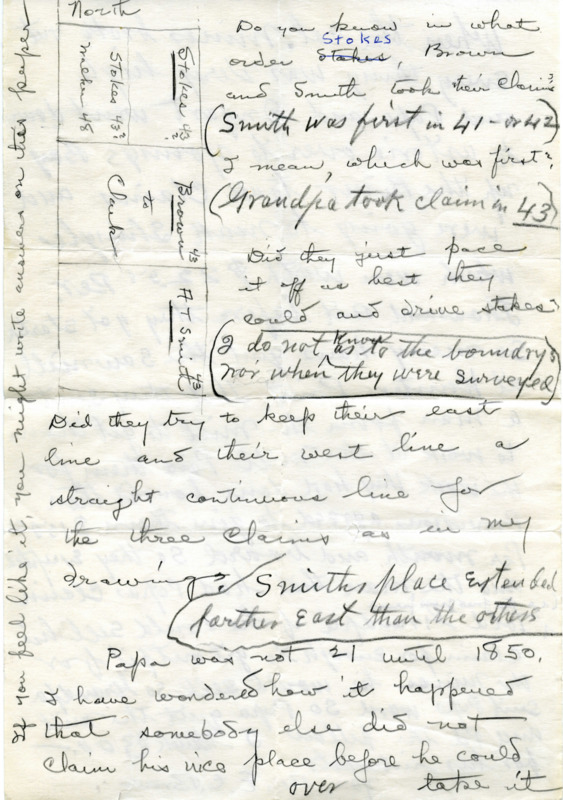 If you feel like it, you might write answers on this paper
North
Stokes 43?
Stokes 43?
Brown 43
to
Clark
A T Smith 43
Do you know in what
Stokes
order Stakes, Brown
and Smith took their claims?
(Smith was first in 41 - or 42)
I mean, which was first?
(Grandpa took claim in 43)
Did they just pace
it off as best they
could and drive stakes?
(I do not Know as to the boundrys
nor when they were surveyed)
Did they try to keep their east
line and their west line a
straight continuous line for
the three claims as in my
drawing?
Smiths place Extended
farther East than the others
Papa was not 21 until 1850.
I have wondered how it happened
that somebody else did not
claim his nice place before he could
over take it